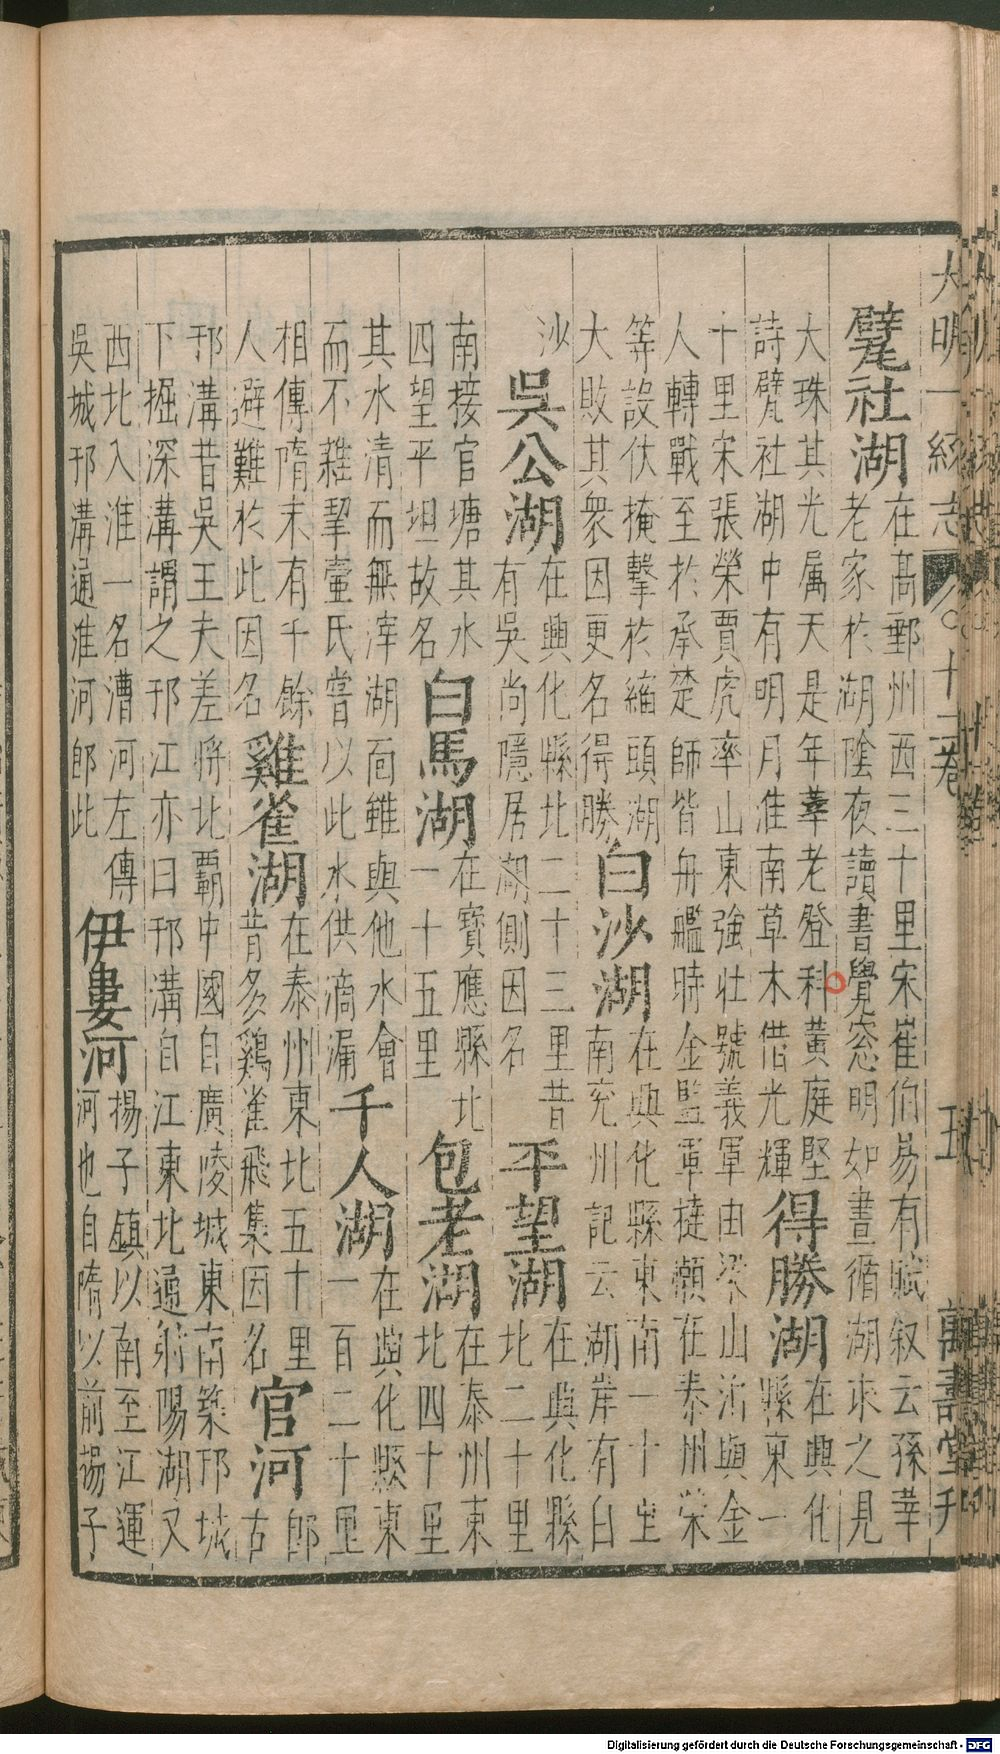 大明一統志 十二卷 五 萬壽堂刊
甓社湖 在高郵州西三十里宋崔伯易有賦叙云孫莘
老家於湖陰夜讀書覺窓明如晝循湖求之見
大珠其光属天是年莘老登科黄庭堅
詩甓社湖中有明月淮南草木借光輝 得勝湖 在興化
縣東一
十里宋張榮賈虎率山東強壯號義軍由梁山泝與金
人轉戰至於承楚師皆舟艦時金監軍撻懶在泰州榮
等設伏掩擊於縮頭湖
大敗其衆因更名得勝 白沙湖 在興化縣東南一十里
南兖州記云湖岸有白
沙 吳公湖 在興化縣北二十三里昔
有吳尚隱居湖側因名 平望湖 在興化縣
北二十里
南接官塘其水
四望平坦故名 白馬湖 在寶應縣北
一十五里 包老湖 在泰州東
北四十里
其水清而無滓湖面雖與他水會
而不雜挈壷氏嘗以此水供滴漏 千人湖 在興化縣東
一百二十里
相傳隋末有千餘
人避難於此因名 雞雀湖 在泰州東北五十里
昔多鷄雀飛集因名 官河 即
古
邗溝昔吳王夫差將北覇中國自廣陵城東南築邗城
下掘深溝謂之邗江亦曰邗溝自江東北通射陽湖又
西北入淮一名漕河左傳
吳城邗溝通淮河即此 伊婁河 揚子鎮以南至江運
河也自隋以前揚子
Digitalisierung gefördert durch die Deutsche Forschungsgemeinschaft - DFG